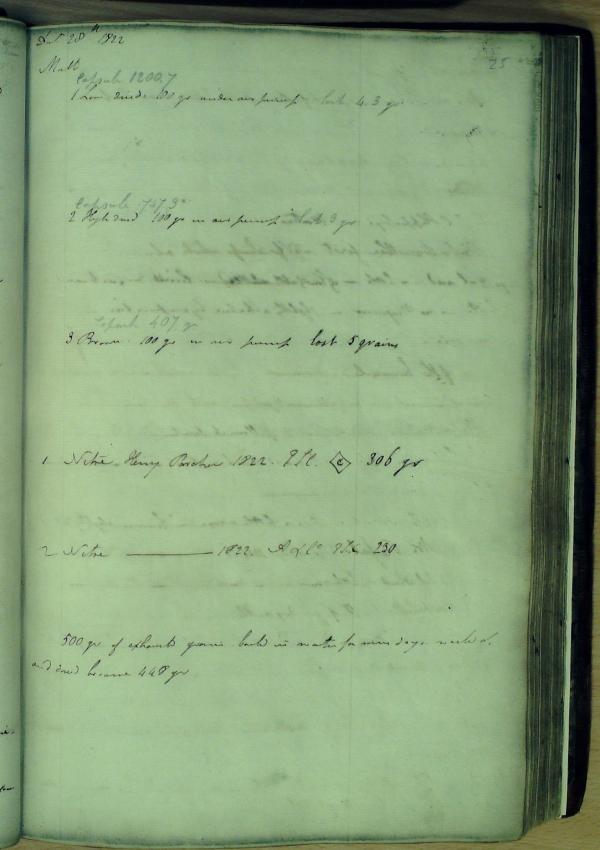 28th 1822
25
Malt
Capsule 1200.7
1 Low dried 100 gr under air pump lost 4.3 gr
Capsule 757.3
2 High dried 100 gr in air pump lost 3 gr
Capsule 407 gr
3 Brown 100 gr in air pump lost 5 grains
1 Nitre Henry Porcher 1822. C 306 gr
2 Nitre ——— 1822. 230
500 gr of exhausted in water for nine days washed
and dried became 448 gr